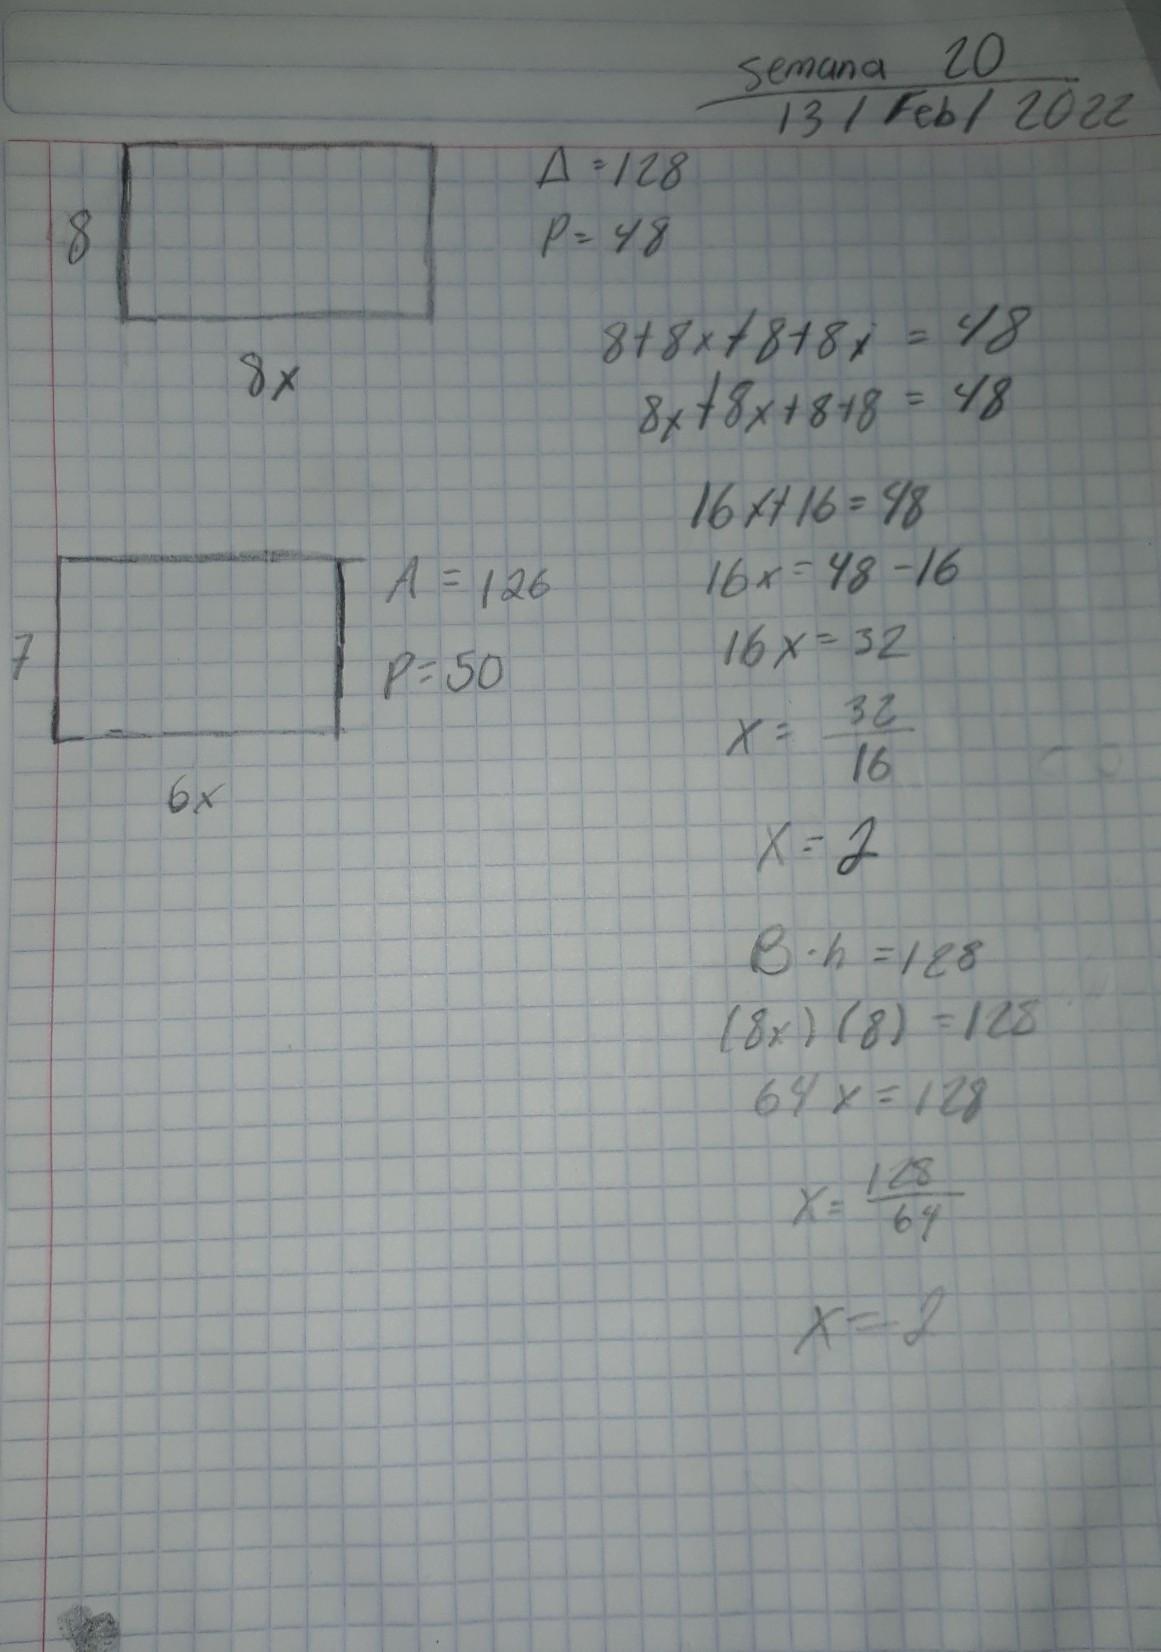 semana 20
13 / Feb / 2022
A = 128
8
P = 48
8x
8+8x+8+8x = 48
8x+8x+8+8 = 48
16x+16 = 48
A = 126
16x = 48 - 16
7
P = 50
16x = 32
x = 32/16
6x
x = 2
B · h = 128
(8x) (8) = 128
64x = 128
x = 128/64
x = 2